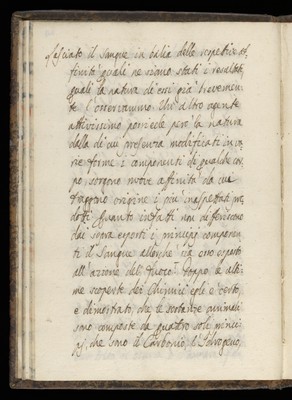 lasciato il sangue in balia delle rispettive af-
finità quali ne siano stati i resultati,
quali la natura di essi già brevemen-
te l'osservammo. Che altro agente
attivissimo porriede però la natura
dalla di cui presenza modificati in va-
rie forme i componenti di qualche cor-
po, sorgono nuove affinità da cui
traggono origine i più inaspettati pro-
dotti. Quanto infatti non differiscono
dai sopra esposti i principj componen-
ti il Sangue allorchè sia esso esposto
all'azione del fuoco? Doppo le ulti-
me scoperte dei Chimici egli è certo,
e dimostrato, che le sostanze animali
sono composte da quattro soli princi-
pj, che sono il Carbonio, l'Idrogeno,